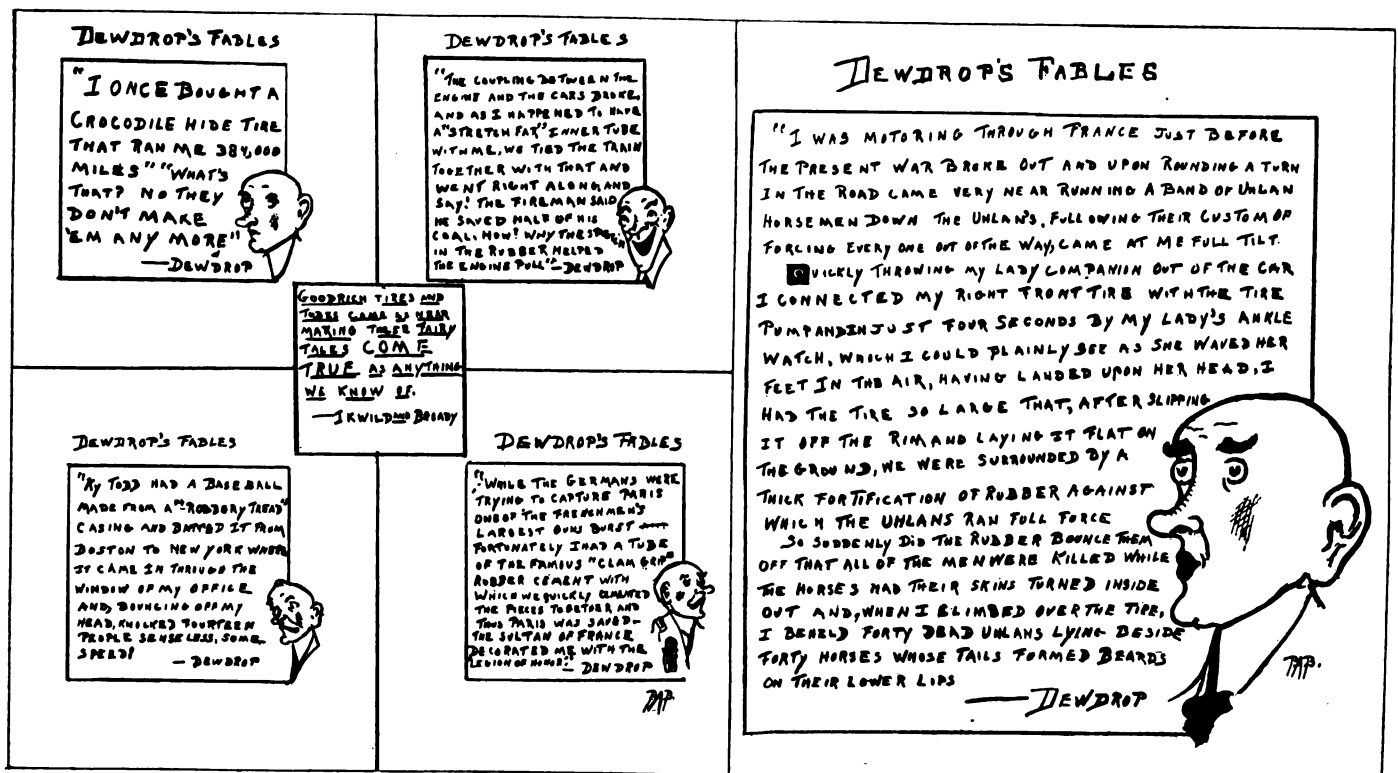 DEWDROP'S FABLES
"I ONCE BOUGHT A
CROCODILE HIDE TIRE
THAT RAN ME 384,000
MILES" "WHAT'S
THAT? NO THEY
DON'T MAKE
'EM ANY MORE"
—DEWDROP
DEWDROP'S FABLES
"THE COUPLING BETWEEN THE
ENGINE AND THE CARS BROKE,
AND AS I HAPPENED TO HAVE
A "STRETCH FAR" INNER TUBE
WITH ME, WE TIED THE TRAIN
TOGETHER WITH THAT AND
WENT RIGHT ALONG AND
SAY! THE FIREMAN SAID
HE SAVED HALF OF HIS
COAL. HOW? WHY THE STRETCH
IN THE RUBBER HELPED
THE ENGINE PULL" —DEWDROP
GOODRICH TIRES AND
TUBES COME AS NEAR
MAKING THESE FAIRY
TALES COME
TRUE AS ANYTHING
WE KNOW OF.
—IKWILD AND BROADY
DEWDROP'S FABLES
"KY TODD HAD A BASE BALL
MADE FROM A "ROBBORY TREAD"
CASING AND BATTED IT FROM
BOSTON TO NEW YORK WHERE
IT CAME IN THROUGH THE
WINDOW OF MY OFFICE
AND, BOUNCING OFF MY
HEAD, KNOCKED FOURTEEN
PEOPLE SENSELESS, SOME
SPEED!
— DEWDROP
DEWDROP'S FABLES
"WHILE THE GERMANS WERE
TRYING TO CAPTURE PARIS
ONE OF THE FRENCHMEN'S
LARGEST GUNS BURST
FORTUNATELY I HAD A TUBE
OF THE FAMOUS "CLAM GRIP"
RUBBER CEMENT WITH
WHICH WE QUICKLY CEMENTED
THE PIECES TOGETHER AND
THUS PARIS WAS SAVED—
THE SULTAN OF FRANCE
DECORATED ME WITH THE
LEGION OF HONOR." — DEWDROP
PAP.
DEWDROP'S FABLES
"I WAS MOTORING THROUGH FRANCE JUST BEFORE
THE PRESENT WAR BROKE OUT AND UPON ROUNDING A TURN
IN THE ROAD CAME VERY NEAR RUNNING A BAND OF UHLAN
HORSEMEN DOWN THE UHLAN'S, FOLLOWING THEIR CUSTOM OF
FORCING EVERY ONE OUT OF THE WAY, CAME AT ME FULL TILT.
QUICKLY THROWING MY LADY COMPANION OUT OF THE CAR
I CONNECTED MY RIGHT FRONT TIRE WITH THE TIRE
PUMP AND IN JUST FOUR SECONDS BY MY LADY'S ANKLE
WATCH, WHICH I COULD PLAINLY SEE AS SHE WAVED HER
FEET IN THE AIR, HAVING LANDED UPON HER HEAD, I
HAD THE TIRE SO LARGE THAT, AFTER SLIPPING
IT OFF THE RIM AND LAYING IT FLAT ON
THE GROUND, WE WERE SURROUNDED BY A
THICK FORTIFICATION OF RUBBER AGAINST
WHICH THE UHLANS RAN FULL FORCE
SO SUDDENLY DID THE RUBBER BOUNCE THEM
OFF THAT ALL OF THE MEN WERE KILLED WHILE
THE HORSES HAD THEIR SKINS TURNED INSIDE
OUT AND, WHEN I CLIMBED OVER THE TIRE,
I BEHELD FORTY DEAD UHLANS LYING BESIDE
FORTY HORSES WHOSE TAILS FORMED BEARDS
ON THEIR LOWER LIPS
—DEWDROP
PAP.